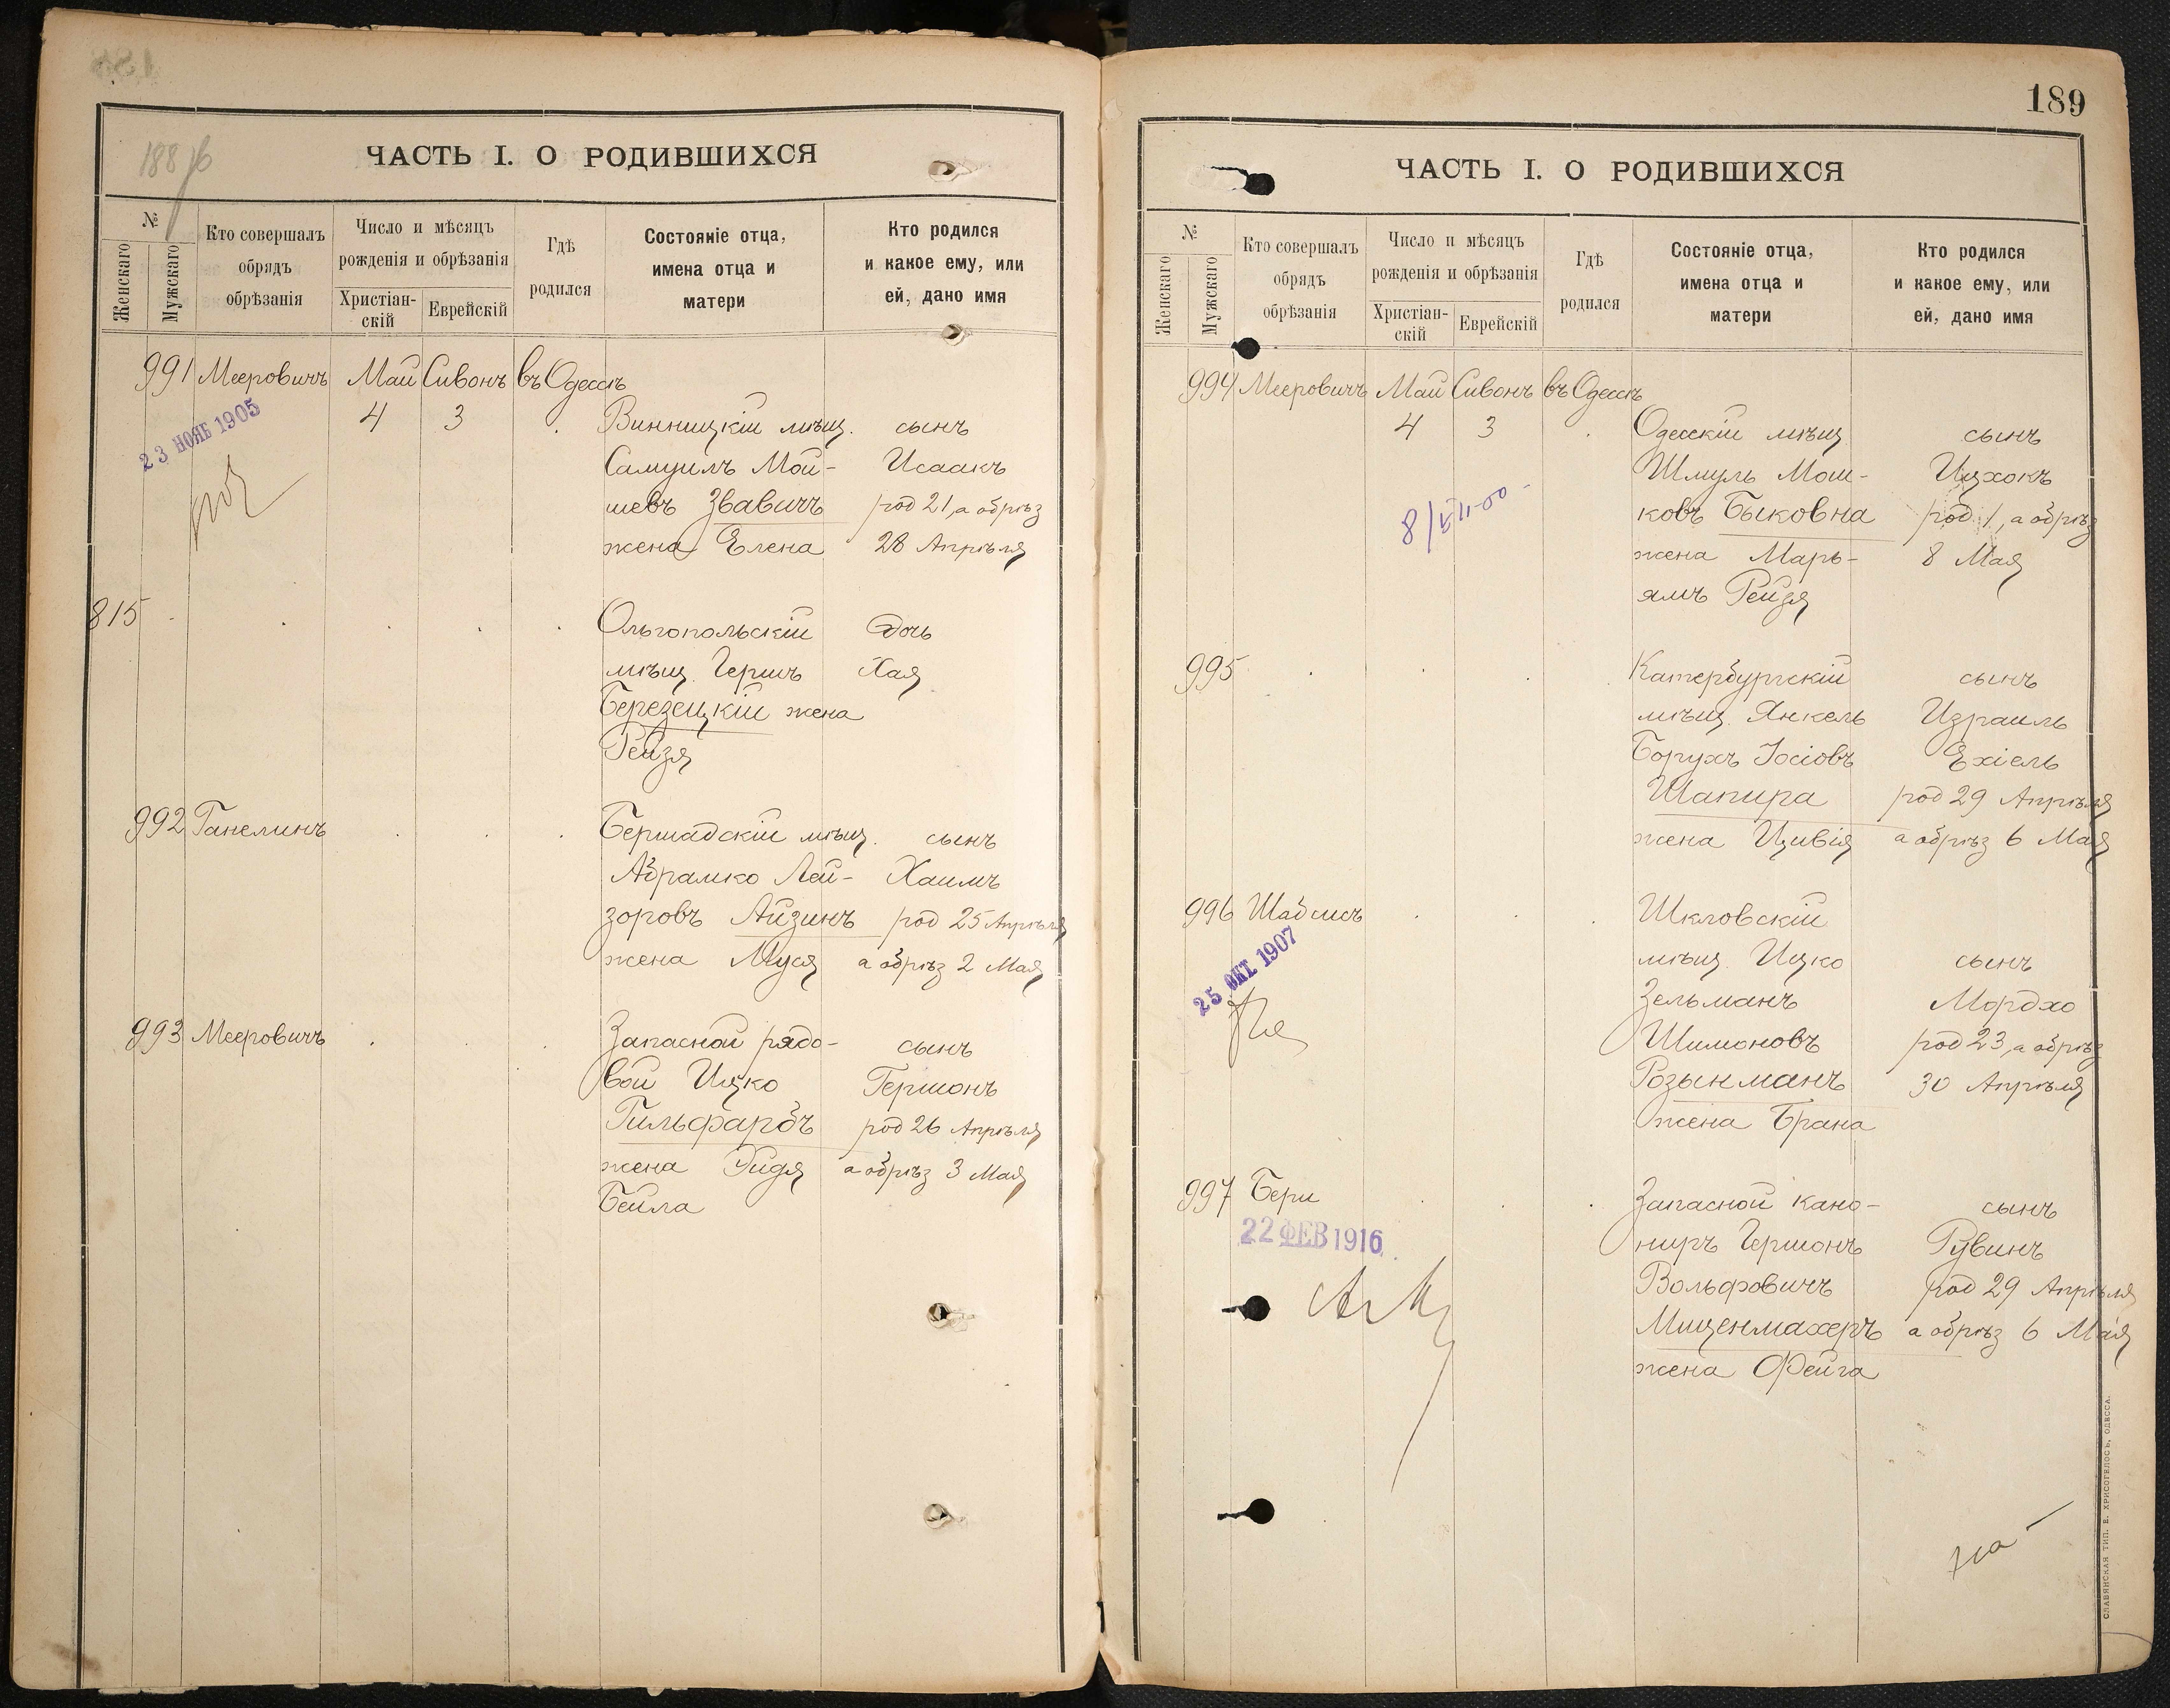 188 об
ЧАСТЬ I. О РОДИВШИХСЯ
№
Женскаго
Мужскаго
Кто совершалъ
обрядъ
обрѣзанія
Число и мѣсяцъ
рожденія и обрѣзанія
Христіан-
скій
Еврейскій
Гдѣ
родился
Состояніе отца,
имена отца и
матери
Кто родился
и какое ему, или
ей, дано имя
991 Мееровичъ Май Сивонъ въ Одессѣ
4 3 Винницкій мѣщ. сынъ
23 НОЯБ 1905
Самуилъ Мой- Исаакъ
шевъ Звавичъ род 21, а обрѣз
жена Елена 28 Апрѣля
815
Ольгопольскій Дочь
мѣщ. Гершъ Хая
Березецкій жена
Рейзя
992 Ганелинъ Бершадскій мѣщ. сынъ
Абрамко Лей- Хаимъ
зоровъ Айзинъ род 25 Апрѣля
жена Муся а обрѣз 2 Мая
993 Мееровичъ Запасной рядо- сынъ
вой Ицко Гершонъ
Гильфарбъ род 26 Апрѣля
жена Ридя а обрѣз 3 Мая
Бейла
189
ЧАСТЬ I. О РОДИВШИХСЯ
№
Женскаго
Мужскаго
Кто совершалъ
обрядъ
обрѣзанія
Число и мѣсяцъ
рожденія и обрѣзанія
Христіан-
скій
Еврейскій
Гдѣ
родился
Состояніе отца,
имена отца и
матери
Кто родился
и какое ему, или
ей, дано имя
994 Мееровичъ Май Сивонъ въ Одессѣ
4 3 Одесскій мѣщ сынъ
Шмуль Мош- Ицхокъ
ковъ Быковна род 1, а обрѣз
жена Марь- 8 Мая
ямъ Рейзя
995 Катербургскій сынъ
мѣщ. Янкель Израиль
Борухъ Іосіовъ Ехіель
Шапира род 29 Апрѣля
жена Цивія а обрѣз 6 Мая
996 Шабсисъ Шкловскій
мѣщ. Ицко сынъ
25 ОКТ 1907
Зельманъ Мордхо
Шимоновъ род 23, а обрѣз
Розынманъ 30 Апрѣля
жена Брана
997 Бери Запасной кано- сынъ
22 ФЕВ 1916
ниръ Гершонъ Рувинъ
Вольфовичъ род 29 Апрѣля
Мищенмахеръ а обрѣз 6 Мая
жена Фейга
СЛАВЯНСКАЯ ТИП. Е. ХРИСОГЕЛОСЪ, ОДЕССА.